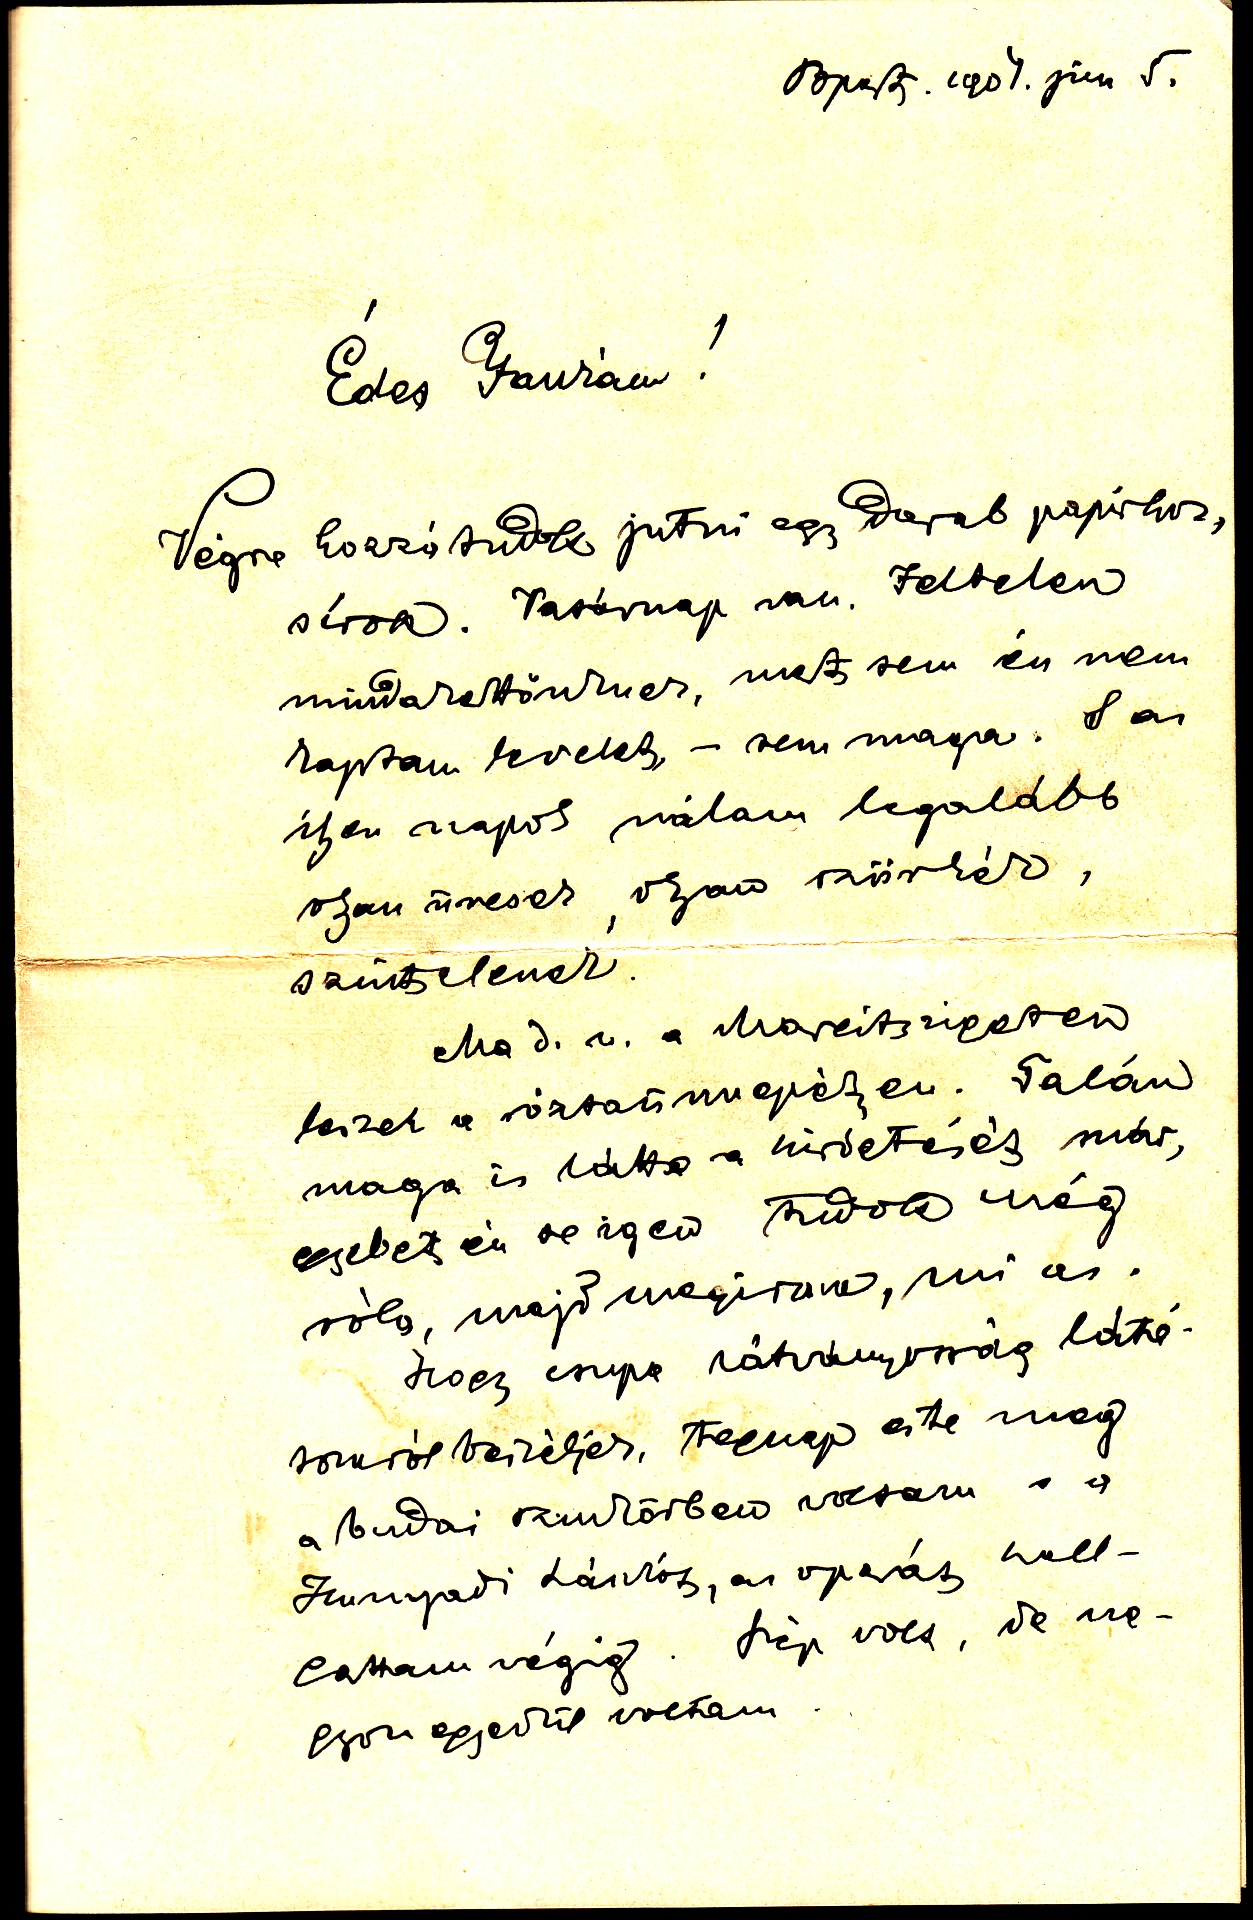 Bpest. 1904. jun 5.
Édes Jankám!
Végre hozzá tudok jutni egy darab papirhoz,
sirok. Vasárnap van. Teltelen
mindakettőnknek, mert sem én nem
kaptam levelet, – sem maga. S az
ilyen napok nálam legalább
olyan üresek, olyan szürkék,
színtelenek.
Ma d. u. a Margitszigeten
leszek a rózsaünnepélyen. Talán
maga is látta a hirdetését már,
egyebet én se igen tudok még
róla, majd megirom, mi az.
Hogy csupa látványosság látá-
somról beszéljek, tegnap este meg
a budai szinkörben voltam s a
Hunyadi Lászlót, az operát hall-
gattam végig. Szép volt, de na-
gyon egyedül voltam.